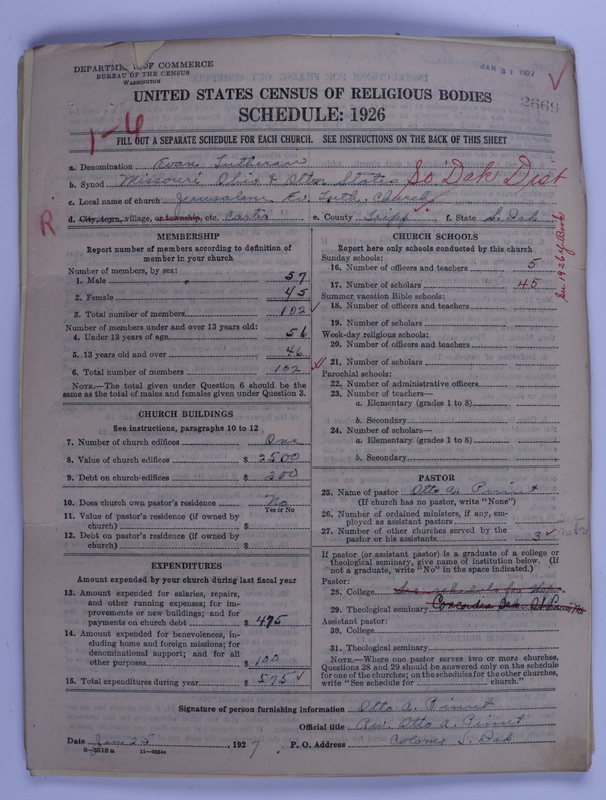 DEPARTMENT OF COMMERCE
BUREAU OF THE CENSUS
WASHINGTON
JAN 31 1927
2669
UNITED STATES CENSUS OF RELIGIOUS BODIES
SCHEDULE: 1926
1-6
FILL OUT A SEPARATE SCHEDULE FOR EACH CHURCH. SEE INSTRUCTIONS ON THE BACK OF THIS SHEET
a. Denomination Evan. Lutheran
b. Synod Missouri Ohio & Other States So Dak Dist
c. Local name of church Jerusalem Ev. Luth. Church
d. City, town, village, or township, etc. Carter e. County Tripp f. State S. Dak
R.
MEMBERSHIP
Report number of members according to definition of member in your church
Number of members, by sex:
1. Male 57
2. Female 45
3. Total number of members 102
Number of members under and over 13 years old:
4. Under 13 years of age 56
5. 13 years old and over 46
6. Total number of members 102
NOTE.—The total given under Question 6 should be the same as the total of males and females given under Question 3.
CHURCH BUILDINGS
See instructions, paragraphs 10 to 12
7. Number of church edifices One
8. Value of church edifices $ 2500
9. Debt on church edifices $ 200
10. Does church own pastor's residence No
Yes or No
11. Value of pastor's residence (if owned by church) $
12. Debt on pastor's residence (if owned by church) $
EXPENDITURES
Amount expended by your church during last fiscal year
13. Amount expended for salaries, repairs, and other running expenses; for improvements or new buildings; and for payments on church debt $ 475
14. Amount expended for benevolences, including home and foreign missions; for denominational support; and for all other purposes $ 100
15. Total expenditures during year $ 575
CHURCH SCHOOLS
Report here only schools conducted by this church
Sunday schools:
16. Number of officers and teachers 5
17. Number of scholars 45
Summer vacation Bible schools:
18. Number of officers and teachers
19. Number of scholars
Week-day religious schools:
20. Number of officers and teachers
21. Number of scholars
Parochial schools:
22. Number of administrative officers
23. Number of teachers—
a. Elementary (grades 1 to 8)
b. Secondary
24. Number of scholars—
a. Elementary (grades 1 to 8)
b. Secondary
PASTOR
25. Name of pastor Otto A.
(If church has no pastor, write "None")
26. Number of ordained ministers, if any, employed as assistant pastors
27. Number of other churches served by the pastor or his assistants 3
If pastor (or assistant pastor) is a graduate of a college or theological seminary, give name of institution below. (If not a graduate, write "No" in the space indicated.)
Pastor:
28. College
29. Theological seminary Concordia
Assistant pastor:
30. College
31. Theological seminary
NOTE.—Where one pastor serves two or more churches, Questions 28 and 29 should be answered only on the schedule for one of the churches; on the schedules for the other churches, write "See schedule for church."
Signature of person furnishing information Otto A.
Official title Rev. Otto A.
Date Jan 25, 1927 P. O. Address Colome S. Dak